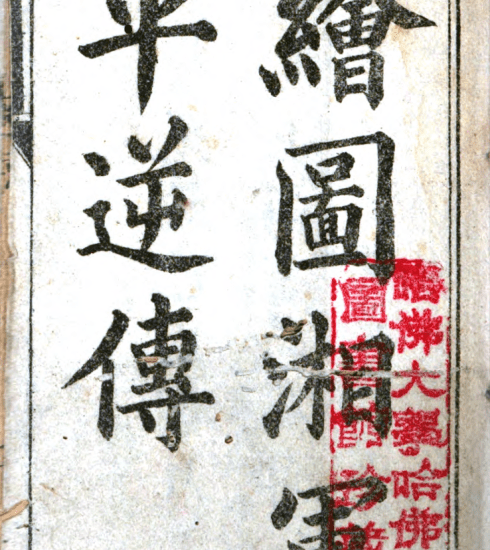 繪圖湘軍
平逆傳
哈佛大學哈佛
圖書館珍藏